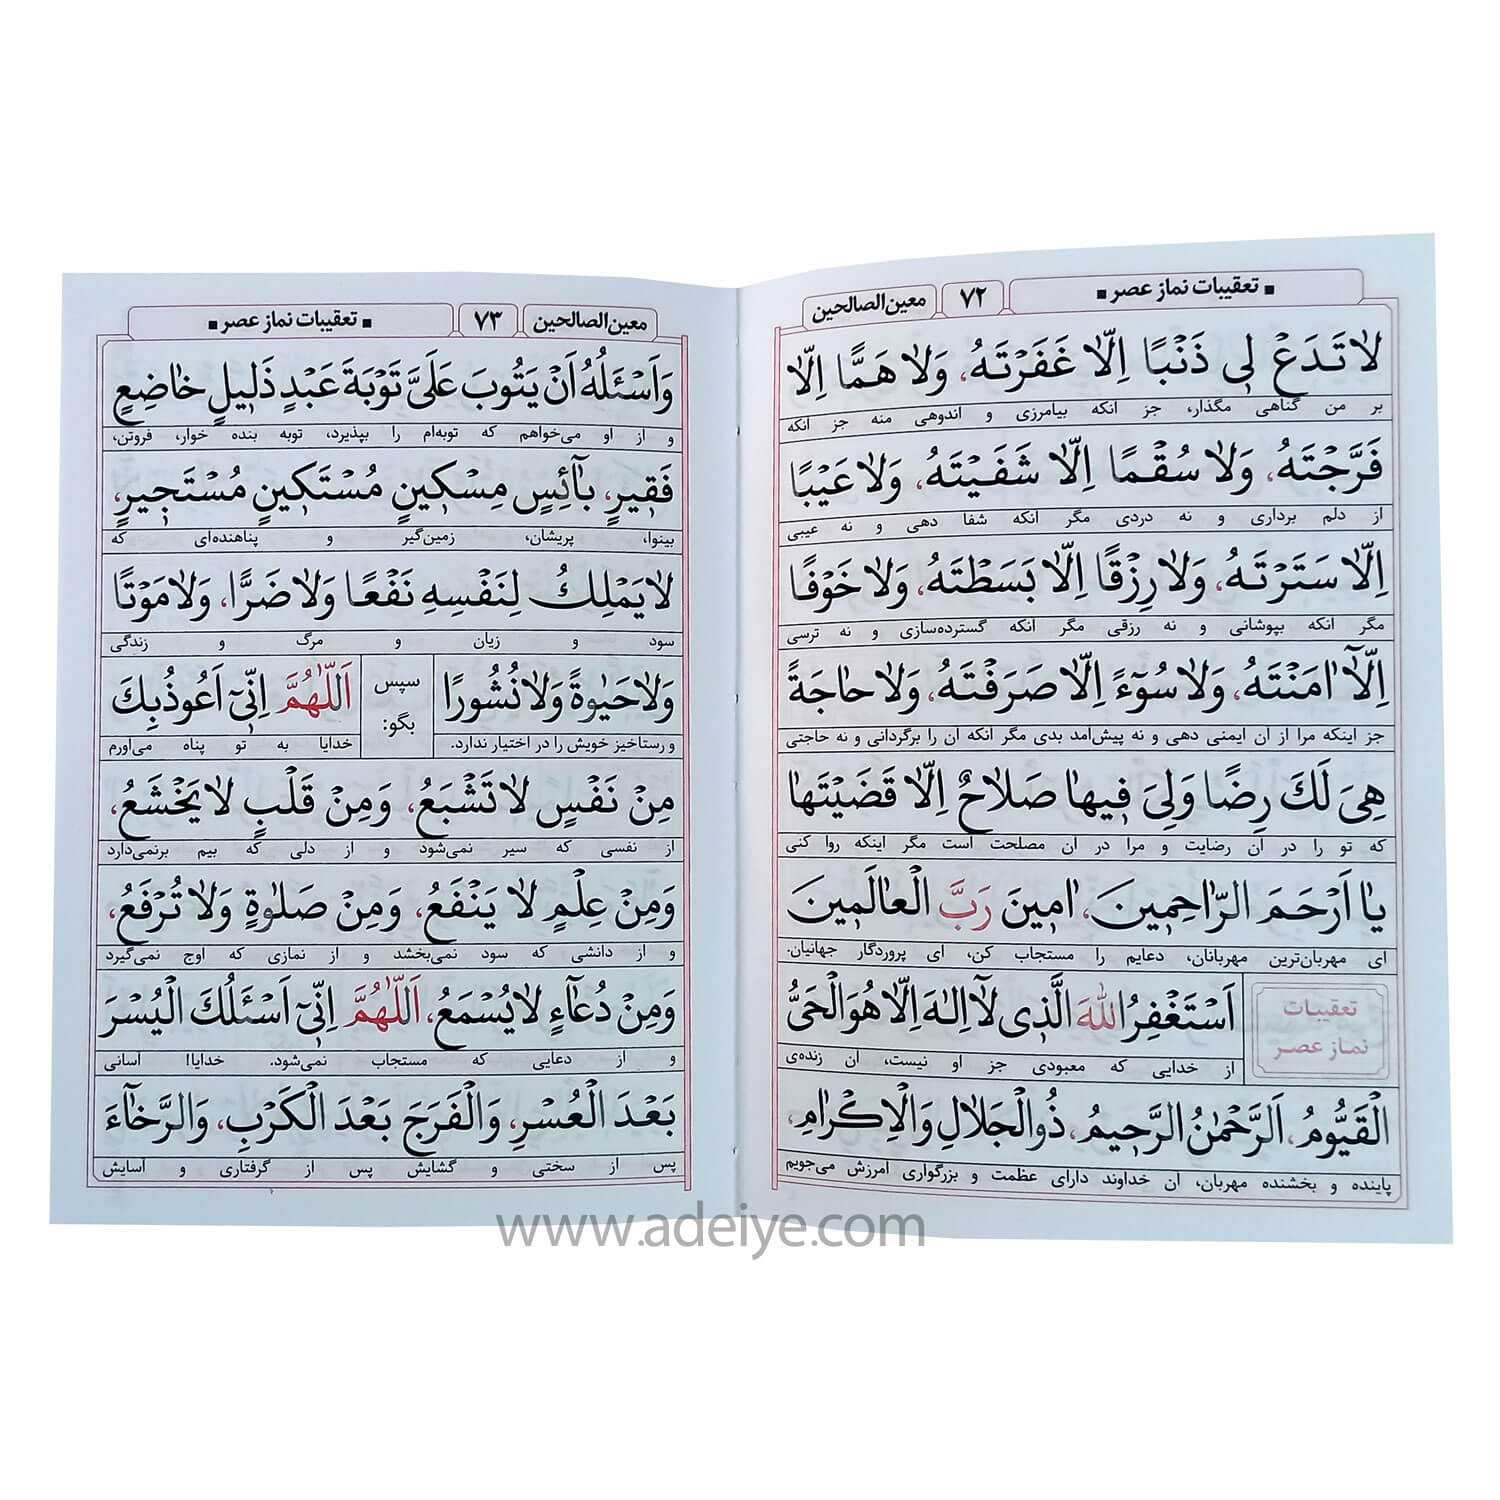 ▪ تعقیبات نماز عصر ▪
۷۲
معین‌الصالحین
لاٰ تَدَعْ لٖی ذَنْبًا اِلّاٰ غَفَرْتَهُ، وَلاٰ هَمًّا اِلّاٰ
بر من گناهی مگذار، جز آنکه بیامرزی و اندوهی منه جز آنکه
فَرَّجْتَهُ، وَلاٰ سُقْمًا اِلّاٰ شَفَیْتَهُ، وَلاٰ عَیْبًا
از دلم برداری و نه دردی مگر آنکه شفا دهی و نه عیبی
اِلّاٰ سَتَرْتَهُ، وَلاٰ رِزْقًا اِلّاٰ بَسَطْتَهُ، وَلاٰ خَوْفًا
مگر آنکه بپوشانی و نه رزقی مگر آنکه گسترده‌سازی و نه ترسی
اِلّاٰۤ اٰمَنْتَهُ، وَلاٰ سُوۤءً اِلّاٰ صَرَفْتَهُ، وَلاٰ حاٰجَةً
جز اینکه مرا از آن ایمنی دهی و نه پیش‌آمد بدی مگر آنکه آن را برگردانی و نه حاجتی
هِیَ لَکَ رِضًا وَلِیَ فٖیهاٰ صَلاٰحٌ اِلّاٰ قَضَیْتَهاٰ
که تو را در آن رضایت و مرا در آن مصلحت است مگر اینکه روا کنی
یاٰ اَرْحَمَ الرّاٰحِمٖینَ، اٰمٖینَ رَبَّ الْعاٰلَمٖینَ
ای مهربان‌ترین مهربانان، دعایم را مستجاب کن، ای پروردگار جهانیان.
تعقیبـات
نمـاز عصـر
اَسْتَغْفِرُ اللهَ الَّذٖی لاٰۤ اِلٰهَ اِلّاٰ هُوَ الْحَیُّ
از خدایی که معبودی جز او نیست، آن زنده‌ی
الْقَیُّومُ، اَلرَّحْمٰنُ الرَّحٖیمُ، ذُوالْجَلاٰلِ وَالْاِکْرٰامِ،
پاینده و بخشنده مهربان، آن خداوند دارای عظمت و بزرگواری آمرزش می‌جویم
معین‌الصالحین
۷۳
▪ تعقیبات نماز عصر ▪
وَاَسْئَلُهُ اَنْ یَتُوبَ عَلَیَّ تَوْبَةَ عَبْدٍ ذَلٖیلٍ خاٰضِعٍ
و از او می‌خواهم که توبه‌ام را بپذیرد، توبه بنده خوار، فروتن،
فَقٖیرٍ، بآٰئِسٍ مِسْکٖینٍ مُسْتَکٖینٍ مُسْتَجٖیرٍ،
بینوا، پریشان، زمین‌گیر و پناهنده‌ای که
لاٰ یَمْلِکُ لِنَفْسِهِ نَفْعًا وَلاٰ ضَرًّا، وَلاٰ مَوْتًا
سود و زیان و مرگ و زندگی
وَلاٰ حَیٰوةً وَلاٰ نُشُورًا
و رستاخیز خویش را در اختیار ندارد.
سپس
بگو:
اَللّٰهُمَّ اِنّٖیۤ اَعُوذُ بِکَ
خدایا به تو پناه می‌آورم
مِنْ نَفْسٍ لاٰ تَشْبَعُ، وَمِنْ قَلْبٍ لاٰ یَخْشَعُ،
از نفسی که سیر نمی‌شود و از دلی که بیم برنمی‌دارد
وَمِنْ عِلْمٍ لاٰ یَنْفَعُ، وَمِنْ صَلاٰوةٍ وَلاٰ تُرْفَعُ،
و از دانشی که سود نمی‌بخشد و از نمازی که اوج نمی‌گیرد
وَمِنْ دُعآٰءٍ لاٰ یُسْمَعُ، اَللّٰهُمَّ اِنّٖیۤ اَسْئَلُکَ الْیُسْرَ
و از دعایی که مستجاب نمی‌شود. خدایا! آسانی
بَعْدَ الْعُسْرِ، وَالْفَرَجَ بَعْدَ الْکَرْبِ، وَالرَّخآٰءَ
پس از سختی و گشایش پس از گرفتاری و آسایش
www.adeiye.com